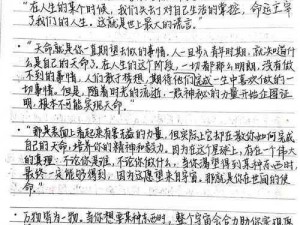 “在人生的某个时候，我们失去了对自己生活的掌控，命运主宰
了我们的人生。这就是世上最大的谎言。”
· “天命就是你一直期望去做的事情，人一旦步入青年时期，就会知道什
么是自己的天命了。在人生的这个阶段，一切都那么明朗，没有做
不到的事情。人们敢于梦想，期待他们完成一生中喜欢做的一
切事情。但是，随着时光的流逝，一股神秘的力量开始企图证
明，根本不可能实现天命。”
· “那是表面上看起来有害无益的力量，但实际上它却在教你如何完成
自己的天命，培养你的精神和毅力。因为在这个星球上，存在一个伟大
的真理：不论你是谁，不论你做什么，当你渴望得到某种东西时，
最终一定能够得到，因为这愿望来自宇宙。那就是你在世间的使
命。”
· 万物皆为一物。当你想要某种东西时，整个宇宙会合力助你实现愿